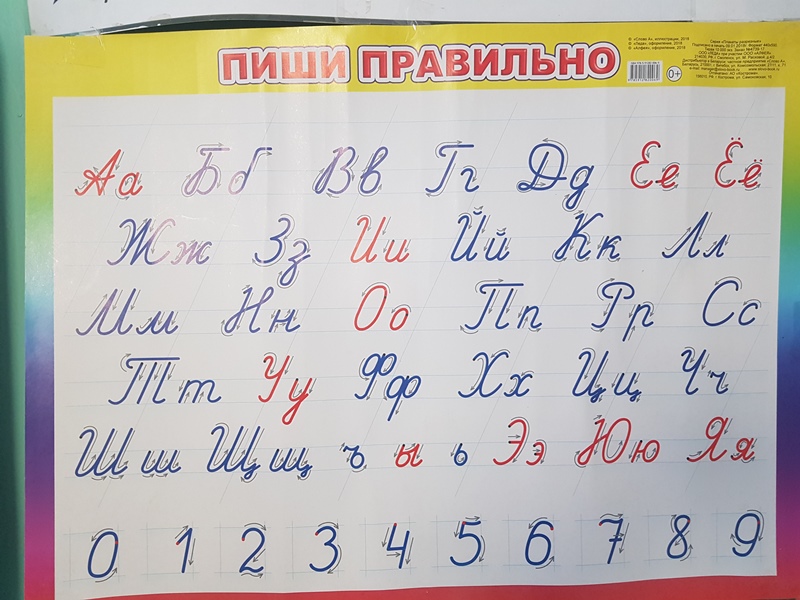 ПИШИ ПРАВИЛЬНО
0+
Аа Бб Вв Гг Дд Ее Ёё
Жж Зз Ии Йй Кк Лл
Мм Нн Оо Пп Рр Сс
Тт Уу Фф Хх Цц Чч
Шш Щщ ъ ы ь Ээ Юю Яя
0 1 2 3 4 5 6 7 8 9